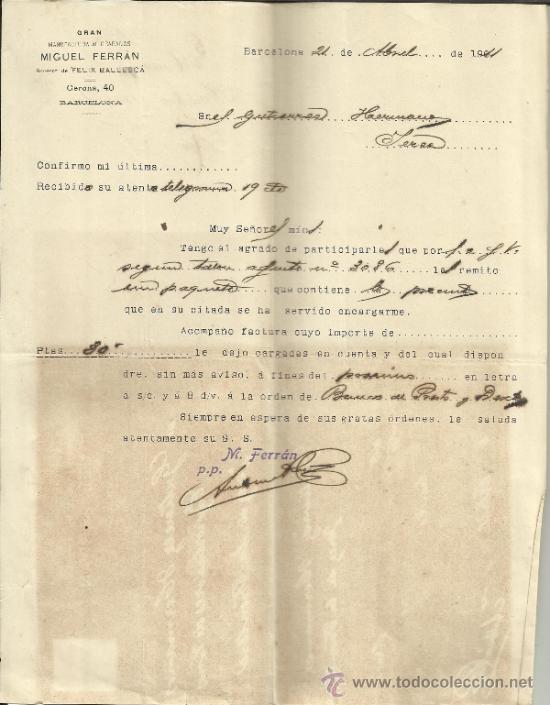 GRAN
MANUFACTURA DE
MIGUEL FERRÁN
Sucesor de FELIX BALLESCÁ
Gerona, 40
BARCELONA
Barcelona 21 de Abril de 1911
Sres Gutierrez Hermanos
Confirmo mi última
Recibida su atenta telegrama 19 cte
Muy Señores mios:
Tengo el agrado de participarles que por
segun talon adjunto nº 3086 les remito
un paquete que contiene
que en su citada se ha servido encargarme.
Acompaño factura cuyo importe de
Ptas. 80'- le dejo cargadas en cuenta y del cual dispon
dre, sin más aviso, á fines del proximo en letra
á s/c. y á 8 d/v. á la orden de Banco de Prest. y Desctos
Siempre en espera de sus gratas órdenes, le saluda
atentamente su S. S.
M. Ferrán
p.p.
todocoleccion
www.todocoleccion.net